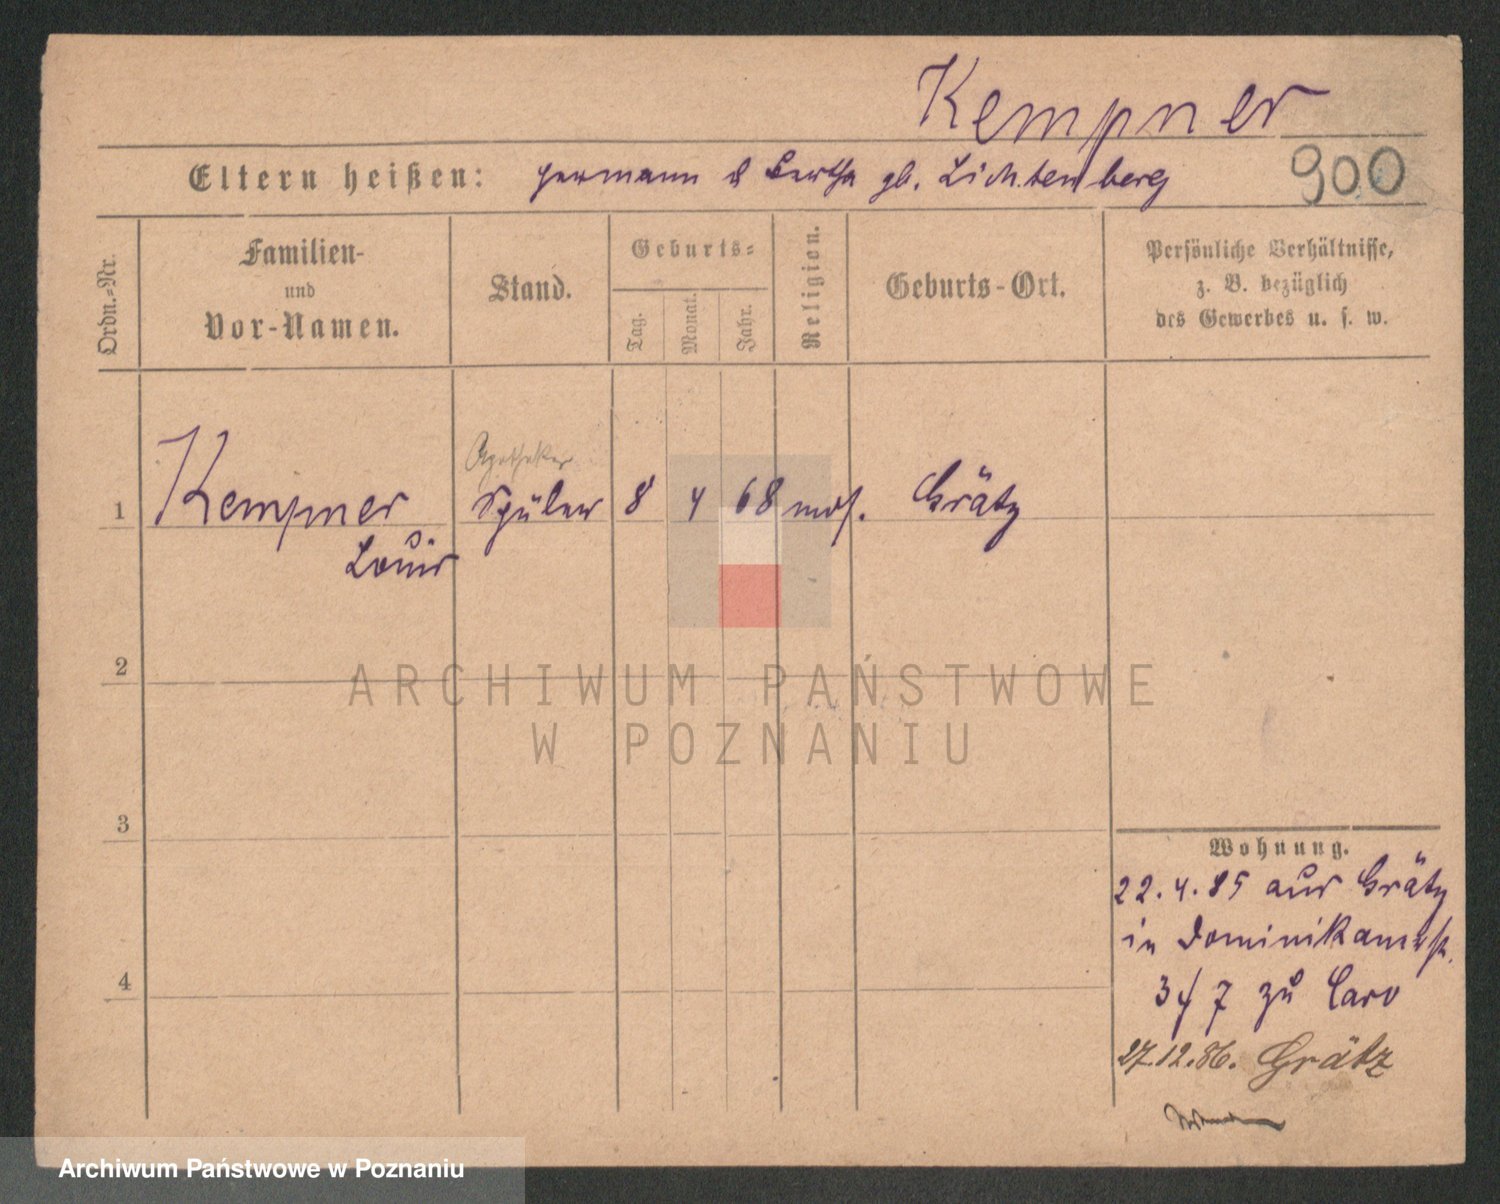 Kempner
Eltern heißen: Hermann & Bertha gb. Lichtenberg
900
Ordn.-Nr.
Familien-
und
Vor-Namen.
Stand.
Geburts-
Tag.
Monat.
Jahr.
Religion.
Geburts-Ort.
Persönliche Verhältnisse,
z. B. bezüglich
des Gewerbes u. s. w.
Apotheker
1 Kempner Schüler 8 4 68 mos. Grätz
Louis
2
ARCHIWUM PAŃSTWOWE
W POZNANIU
3
Wohnung.
22.4.85 aus Grätz
in Dominikanerst.
3/7 zu Caro
4
27.12.86. Grätz
Archiwum Państwowe w Poznaniu